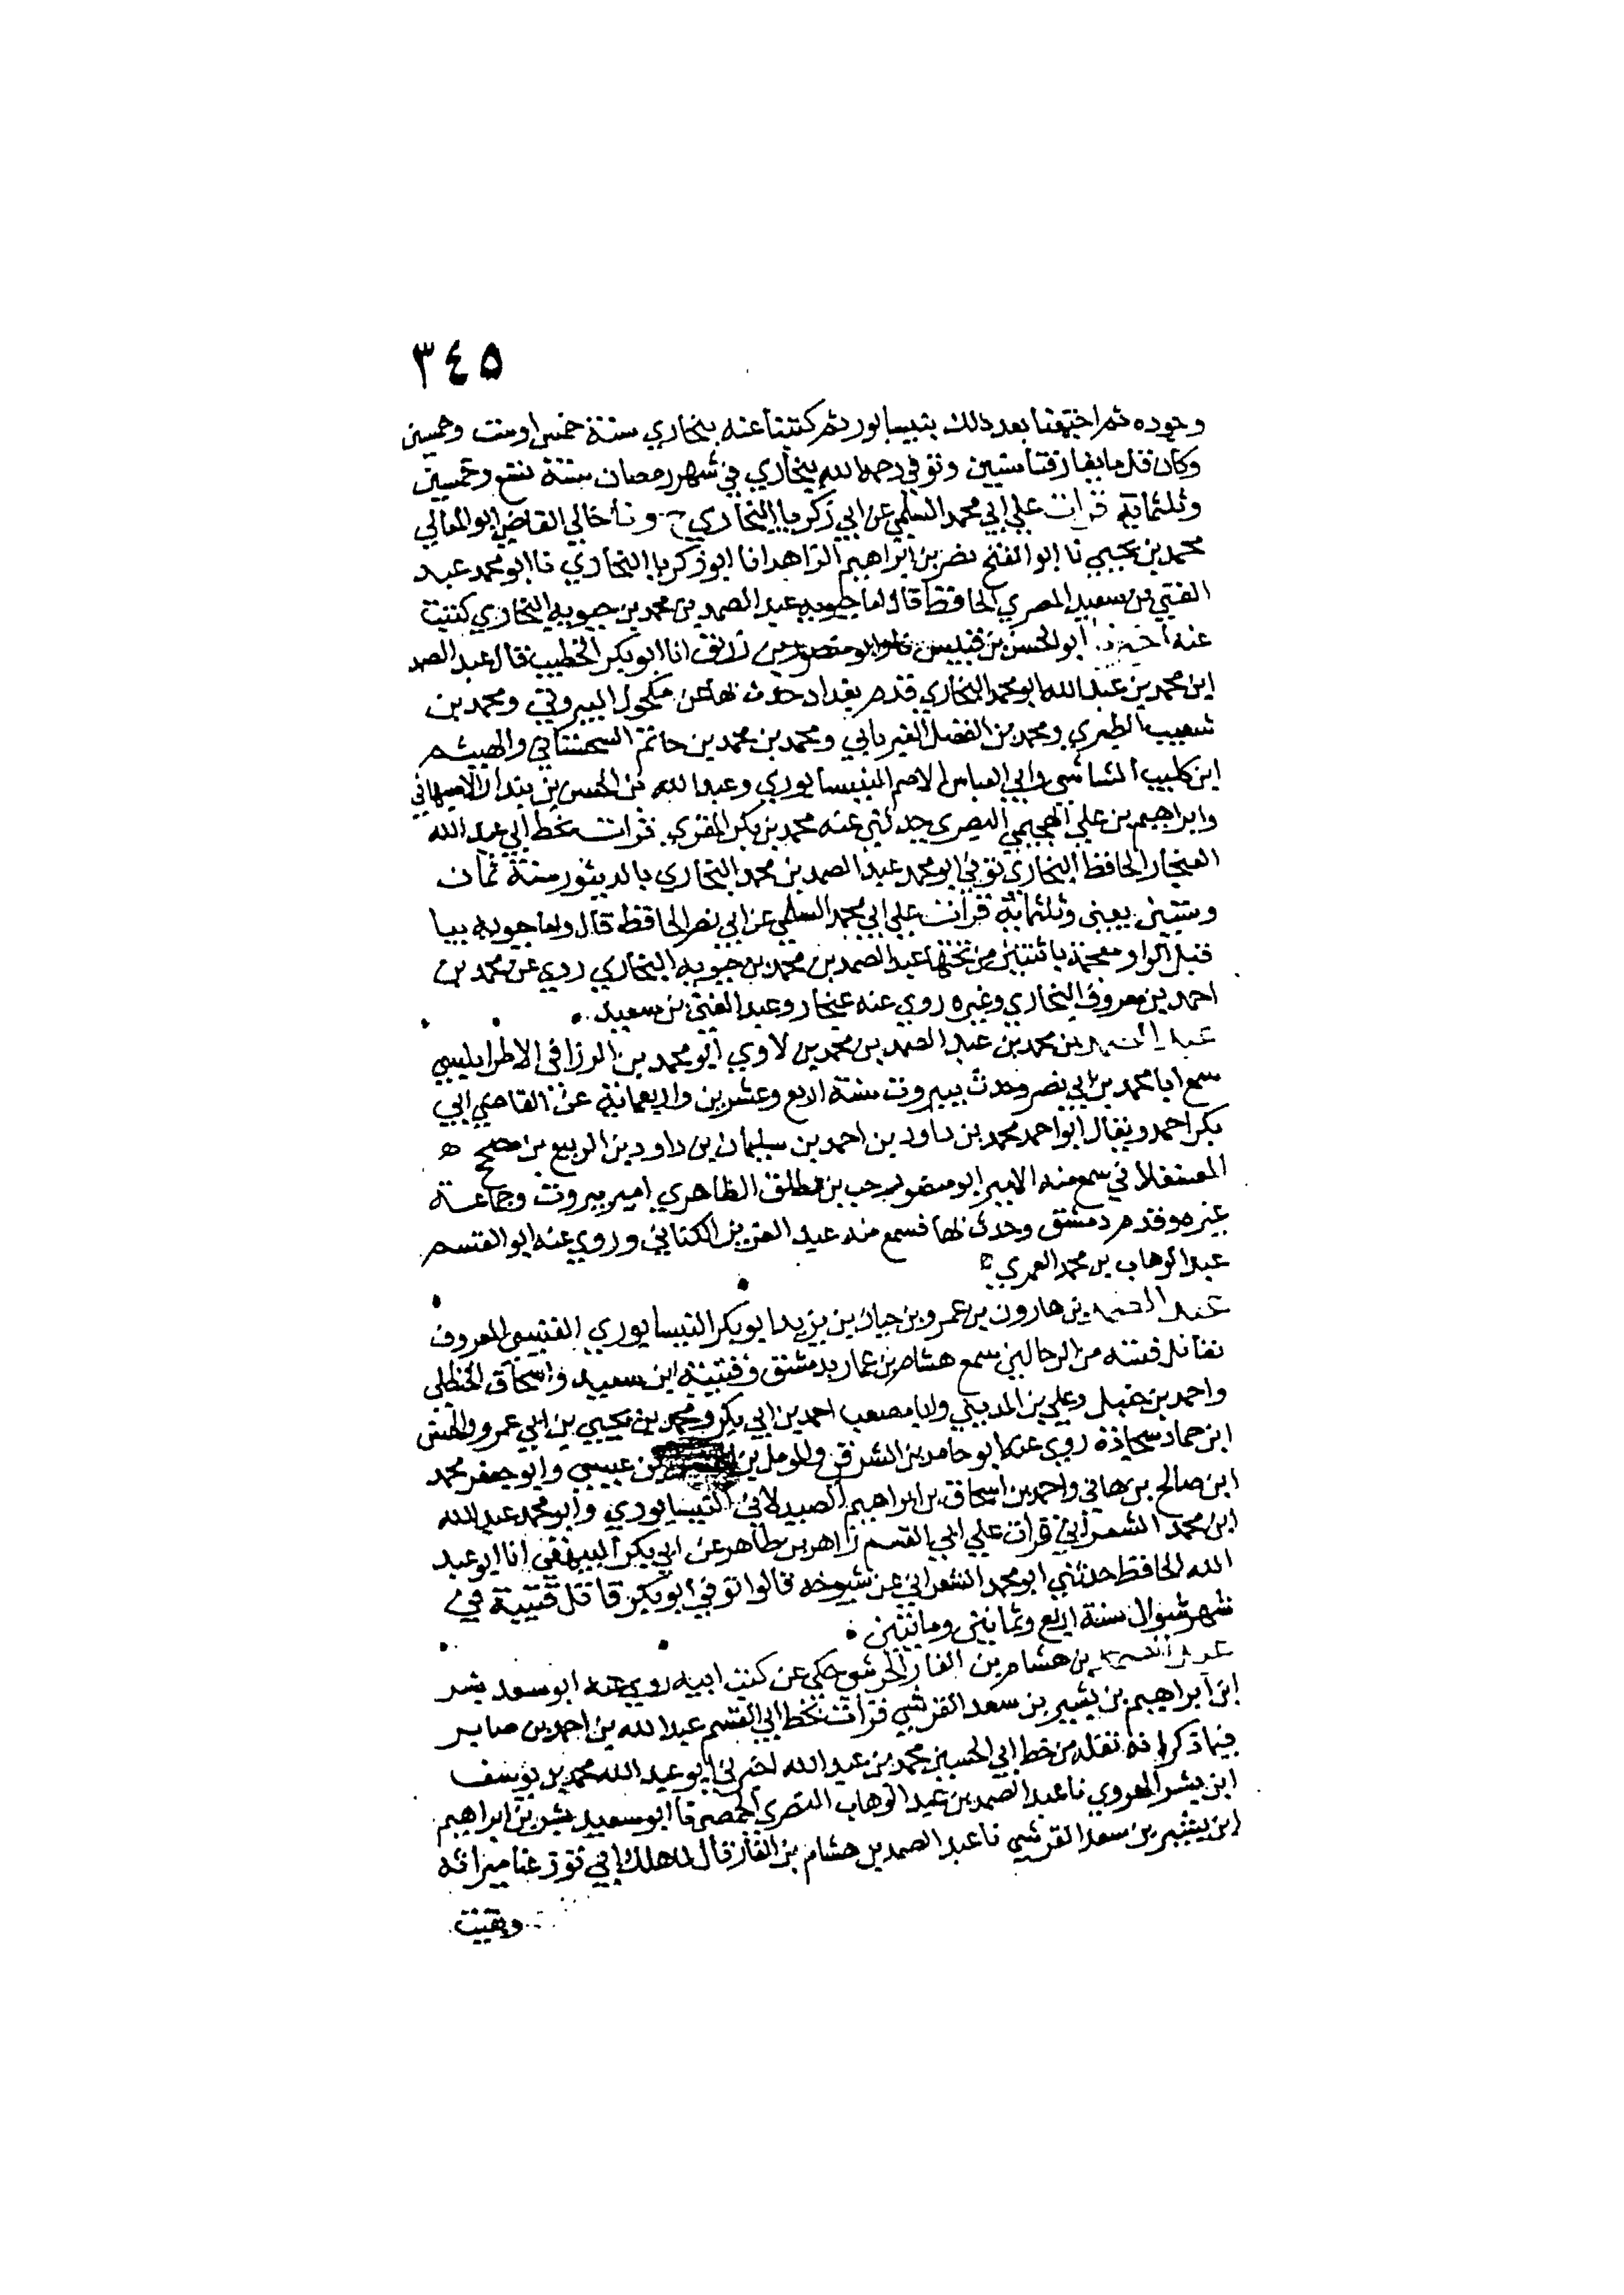 ٣٤٥
وجوده ثم اجتمعنا بعد ذلك بنيسابور ثم كتبنا عنه ببخاري سنة خمس او ست وخمسين
وكان قل ما يفارقنا سنين وتوفي رحمه الله ببخاري في شهر رمضان سنة تسع وخمسين
وثلثماية قرات علي ابي محمد السلمي عن ابي زكريا البخاري ح ونا خالي القاضي ابو المعالي
محمد بن يحيي نا ابو الفتح نصر بن ابراهيم الزاهد انا ابو زكريا البخاري نا ابو محمد عبد
الغني بن سعيد المصري الحافظ قال اما حيويه عبد الصمد بن محمد بن حيويه البخاري كتبت
عنه اخبرنا ابو الحسن بن قبيس وابو منصور بن زريق انا ابو بكر الخطيب قال عبد الصمد
ابن محمد بن عبد الله ابو محمد البخاري قدم بغداد حدث بها عن مكحول البيروتي ومحمد بن
شعيب الطبري ومحمد بن الفضل الفيريابي ومحمد بن محمد بن حاتم السجستاني والهيثم
ابن كليب الشاشي وابي العباس الاصم النيسابوري وعبد الله بن الحسن بن بندار الاصبهاني
وابراهيم بن علي الهجيمي البصري حدثني عنه محمد بن بكر المقري قرات بخط ابي عبد الله
الغنجار الحافظ البخاري توفي ابو محمد عبد الصمد بن محمد البخاري بالدينور سنة ثمان
وستين يعني وثلثماية قرات علي ابي محمد السلمي عن ابي نصر الحافظ قال واما حيويه بيا
قبل الواو معجمة باثنتين من تحتها عبد الصمد بن محمد بن حيويه البخاري روي عن محمد بن
احمد بن معروف البخاري وغيره روي عنه غنجار وعبد الغني بن سعيد
عبد الصمد بن محمد بن عبد الصمد بن محمد بن لاوي ابو محمد بن الرزافي الاطرابلسي
سمع ابا محمد بن ابي نصر وحدث ببيروت سنة اربع وعشرين واربعماية عن القاضي ابي
بكر احمد ويقال ابو احمد محمد بن داود بن احمد بن سليمان بن داود بن الربيع بن مصحح
العسقلاني سمع منه الامير ابو منصور حب بن مطلق الظاهري امير بيروت وجماعة
غيره وقدم دمشق وحدث بها فسمع منه عبد العزيز الكتاني وروي عنه ابو القسم
عبد الوهاب بن محمد العمري
عبد الصمد بن هارون بن عمرو بن حيان بن يزيد ابو بكر النيسابوري القيسي المعروف
بقاتل قتيبة من الرحالين سمع هشام بن عمار بدمشق وقتيبة ابن سعيد واسحاق الحنظلي
واحمد بن حنبل وعلي بن المديني وابا مصعب احمد بن ابي بكر ومحمد بن يحيي بن ابي عمرو والحسن
ابن حماد سجادة روي عنه ابو حامد بن الشرقي والمومل بن الحسن بن عيسي وابو جعفر محمد
ابن صالح بن هاني واحمد بن اسحاق بن ابراهيم الصيدلاني النيسابوري وابو محمد عبد الله
ابن محمد الشعراني قرات علي ابي القسم زاهر بن طاهر عن ابي بكر البيهقي انا ابو عبد
الله الحافظ حدثني ابو محمد الشعراني عن شيوخه قالوا توفي ابو بكر قاتل قتيبة في
شهر شوال سنة اربع وثمانين وماتين
عبد الصمد بن هشام بن الغاز الجرشي حكي عن كتب ابيه روي عنه ابو سعد بشر
ابن ابراهيم بن بشير بن سعد القرشي قرات بخط ابي القسم عبد الله بن احمد بن صابر
فيما ذكر انه نقله من خط ابي الحسين محمد بن عبد الله اخبرني ابو عبد الله محمد بن يوسف
ابن بشر الهروي نا عبد الصمد بن عبد الوهاب النصري الحمصي نا ابو سعيد بشر بن ابراهيم
ابن بشير بن سعد القرشي نا عبد الصمد بن هشام بن الغاز قال لما هلك ابي توزعنا ميراثه
وبقيت